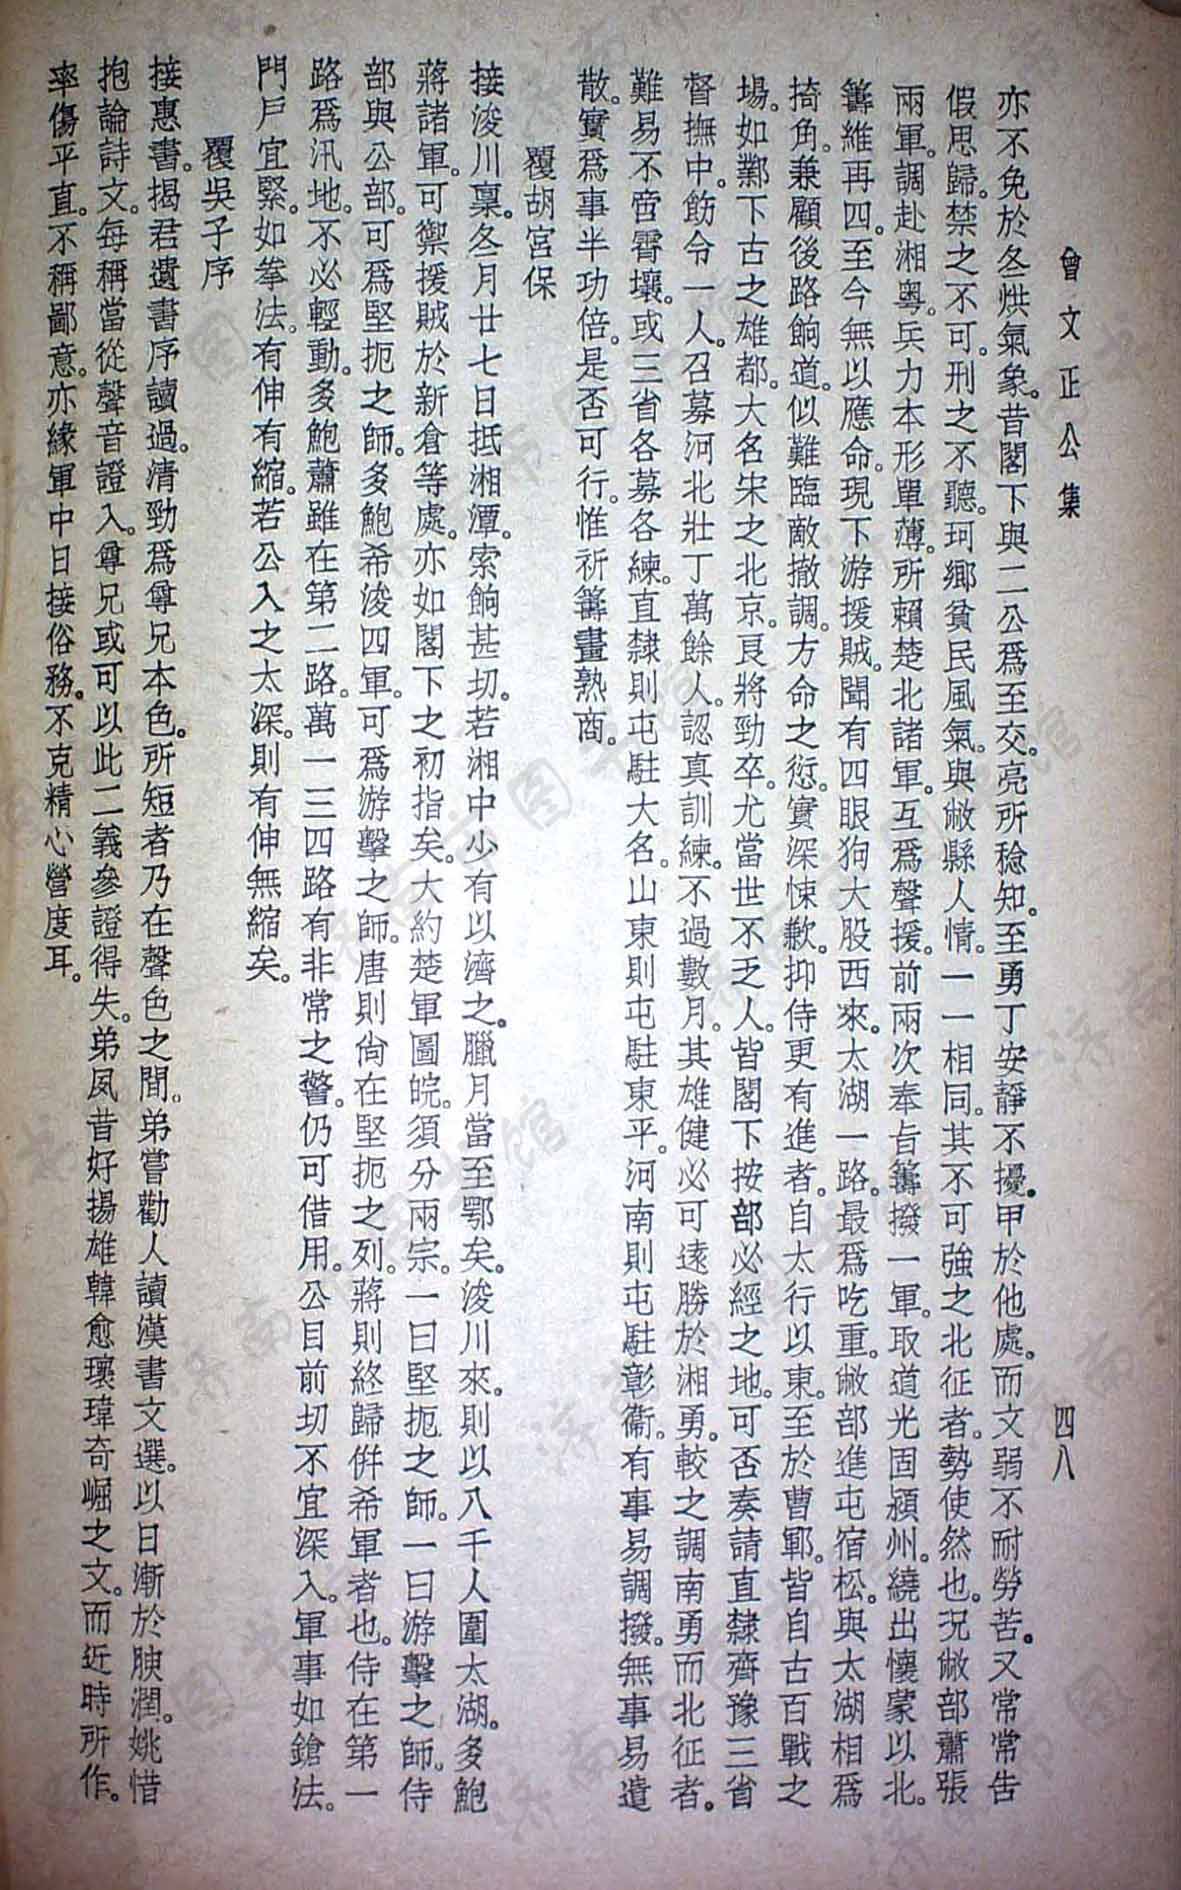 曾文正公集
四八
亦不免於冬烘氣象。昔閣下與二公爲至交。亮所稔知。至勇丁安靜不擾。甲於他處。而文弱不耐勞苦。又常常告
假思歸。禁之不可。刑之不聽。珂鄉貧民風氣。與敝縣人情。一一相同。其不可強之北征者。勢使然也。況敝部蕭張
兩軍。調赴湘粵。兵力本形單薄。所賴楚北諸軍。互爲聲援。前兩次奉旨籌撥一軍。取道光固潁州。繞出懷蒙以北。
籌維再四。至今無以應命。現下游援賊。聞有四眼狗大股西來。太湖一路。最爲吃重。敝部進屯宿松。與太湖相爲
掎角。兼顧後路餉道。似難臨敵撤調。方命之愆。實深悚歉。抑侍更有進者。自太行以東。至於曹鄆。皆自古百戰之
場。如鄴下古之雄都。大名宋之北京。良將勁卒。尤當世不乏人。皆閣下按部必經之地。可否奏請直隸齊豫三省
督撫中。飭令一人。召募河北壯丁萬餘人。認真訓練。不過數月。其雄健必可遠勝於湘勇。較之調南勇而北征者。
難易不啻霄壤。或三省各募各練。直隸則屯駐大名。山東則屯駐東平。河南則屯駐彰衞。有事易調撥。無事易遣
散。實爲事半功倍。是否可行。惟祈籌畫熟商。
覆胡宮保
接浚川稟。冬月廿七日抵湘潭。索餉甚切。若湘中少有以濟之。臘月當至鄂矣。浚川來。則以八千人圍太湖。多鮑
蔣諸軍。可禦援賊於新倉等處。亦如閣下之初指矣。大約楚軍圖皖。須分兩宗。一曰堅扼之師。一曰游擊之師。侍
部與公部。可爲堅扼之師。多鮑希浚四軍。可爲游擊之師。唐則尙在堅扼之列。蔣則終歸倂希軍者也。侍在第一
路爲汛地。不必輕動。多鮑蕭雖在第二路。萬一三四路有非常之警。仍可借用。公目前切不宜深入。軍事如鎗法。
門戶宜緊。如拳法。有伸有縮。若公入之太深。則有伸無縮矣。
覆吳子序
接惠書。揭君遺書序讀過。清勁爲尊兄本色。所短者乃在聲色之間。弟嘗勸人讀漢書文選。以日漸於腴潤。姚惜
抱論詩文。每稱當從聲音證入。尊兄或可以此二義參證得失。弟夙昔好揚雄韓愈瓌瑋奇崛之文。而近時所作。
率傷平直。不稱鄙意。亦緣軍中日接俗務。不克精心營度耳。